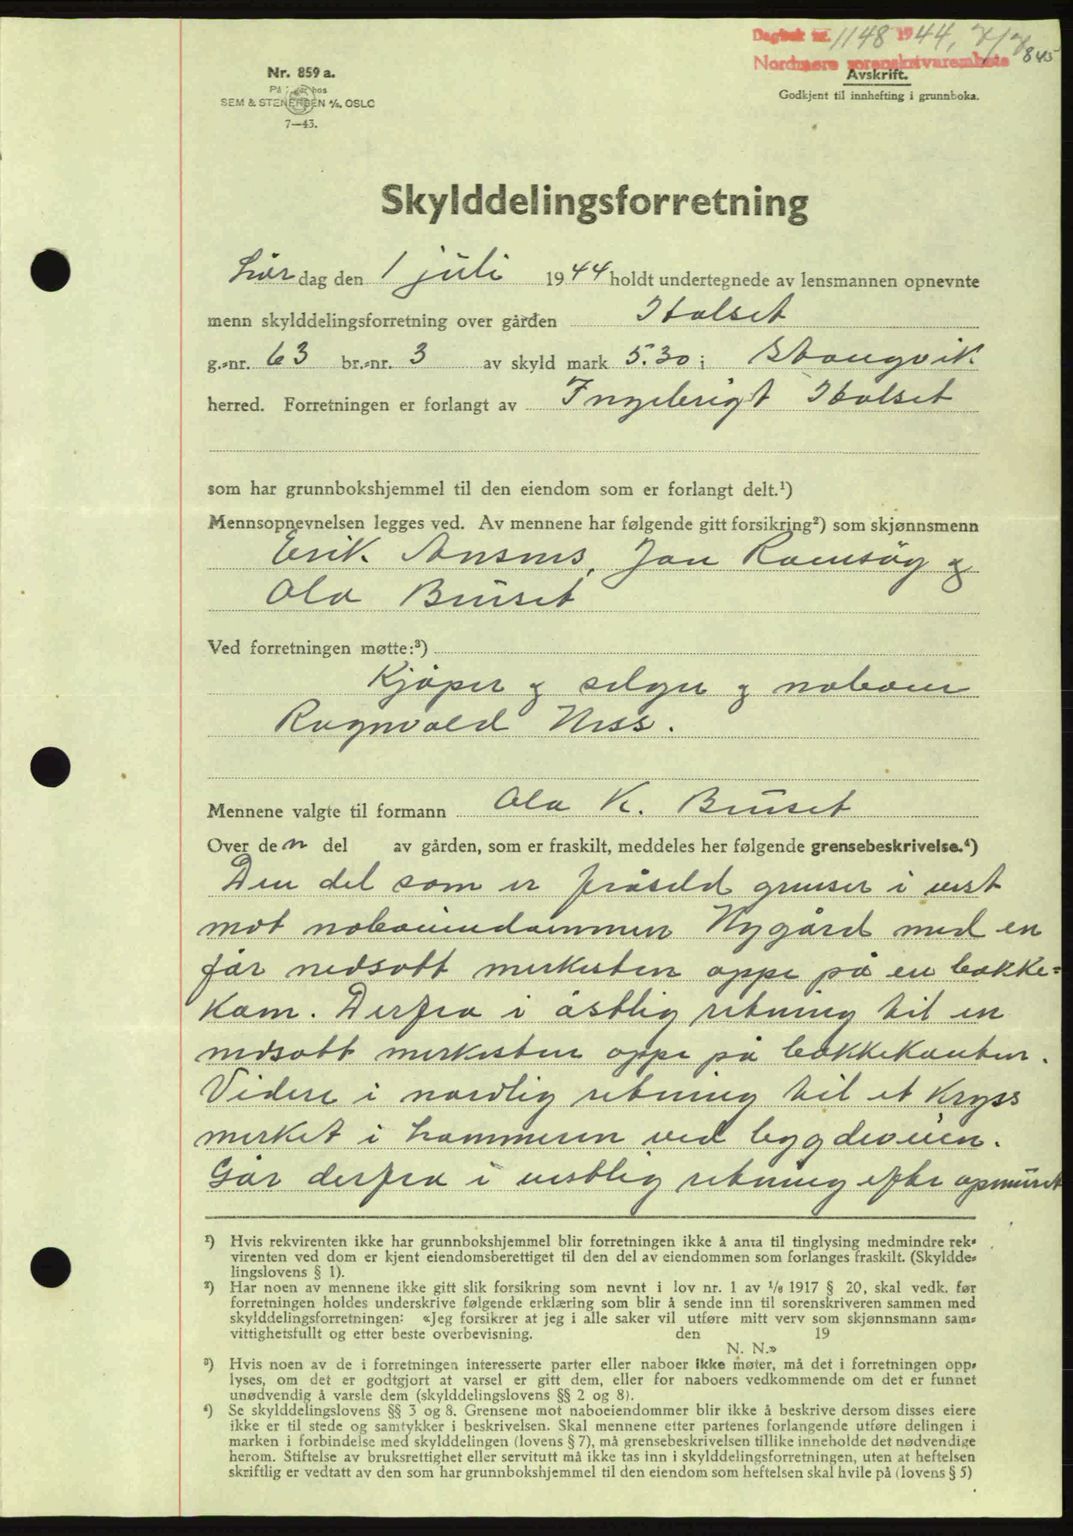 Dagbok nr. 1148 1944, 7/7
Nordmøre sorenskriverembete
845
Nr. 859 a.
På lager hos
SEM & STENERSEN A/S, OSLO
7—43.
Avskrift.
Godkjent til innhefting i grunnboka.
Skylddelingsforretning
Lør dag den 1 juli 1944 holdt undertegnede av lensmannen opnevnte
menn skylddelingsforretning over gården Halset
g.-nr. 63 br.-nr. 3 av skyld mark 5.30 i Stangvik
herred. Forretningen er forlangt av Ingebrigt Halset
som har grunnbokshjemmel til den eiendom som er forlangt delt.¹)
Mennsopnevnelsen legges ved. Av mennene har følgende gitt forsikring²) som skjønnsmenn
Erik Ansnes, Jon Ramsøy og
Ola Buset
Ved forretningen møtte:³)
Kjøper og selger og naboen
Ragnvald Ness.
Mennene valgte til formann Ola K. Buset
Over den del av gården, som er fraskilt, meddeles her følgende grensebeskrivelse.⁴)
Den del som er fråseld grenser i vest
mot naboeiendommen Nygård med en
før nedsatt merkesten oppe på en bakke-
kam. Derfra i østlig retning til en
nedsatt merkesten oppe på bakkekanten.
Videre i nordlig retning til et kryss
merket i hammeren ved bygdeveien.
Går derfra i vestlig retning efter opmuret
¹) Hvis rekvirenten ikke har grunnbokshjemmel blir forretningen ikke å anta til tinglysing medmindre rek-
virenten ved dom er kjent eiendomsberettiget til den del av eiendommen som forlanges fraskilt. (Skyldde-
lingslovens § 1).
²) Har noen av mennene ikke gitt slik forsikring som nevnt i lov nr. 1 av 1/6 1917 § 20, skal vedk. før
forretningen holdes underskrive følgende erklæring som blir å sende inn til sorenskriveren sammen med
skylddelingsforretningen: «Jeg forsikrer at jeg i alle saker vil utføre mitt verv som skjønnsmann sam-
vittighetsfullt og etter beste overbevisning. den 19
N. N.»
³) Hvis noen av de i forretningen interesserte parter eller naboer ikke møter, må det i forretningen opp-
lyses, om det er godtgjort at varsel er gitt dem, eller for naboers vedkommende om det er funnet
unødvendig å varsle dem (skylddelingslovens §§ 2 og 8).
⁴) Se skylddelingslovens §§ 3 og 8. Grensene mot naboeiendommer blir ikke å beskrive dersom disses eiere
ikke er til stede og samtykker i beskrivelsen. Skal mennene etter partenes forlangende utføre delingen i
marken i forbindelse med skylddelingen (lovens § 7), må grensebeskrivelsen tillike inneholde det nødvendige
herom. Stiftelse av bruksrettighet eller servitutt må ikke tas inn i skylddelingsforretningen, uten at heftelsen
skriftlig er vedtatt av den som har grunnbokshjemmel til den eiendom som heftelsen skal hvile på (lovens § 5)